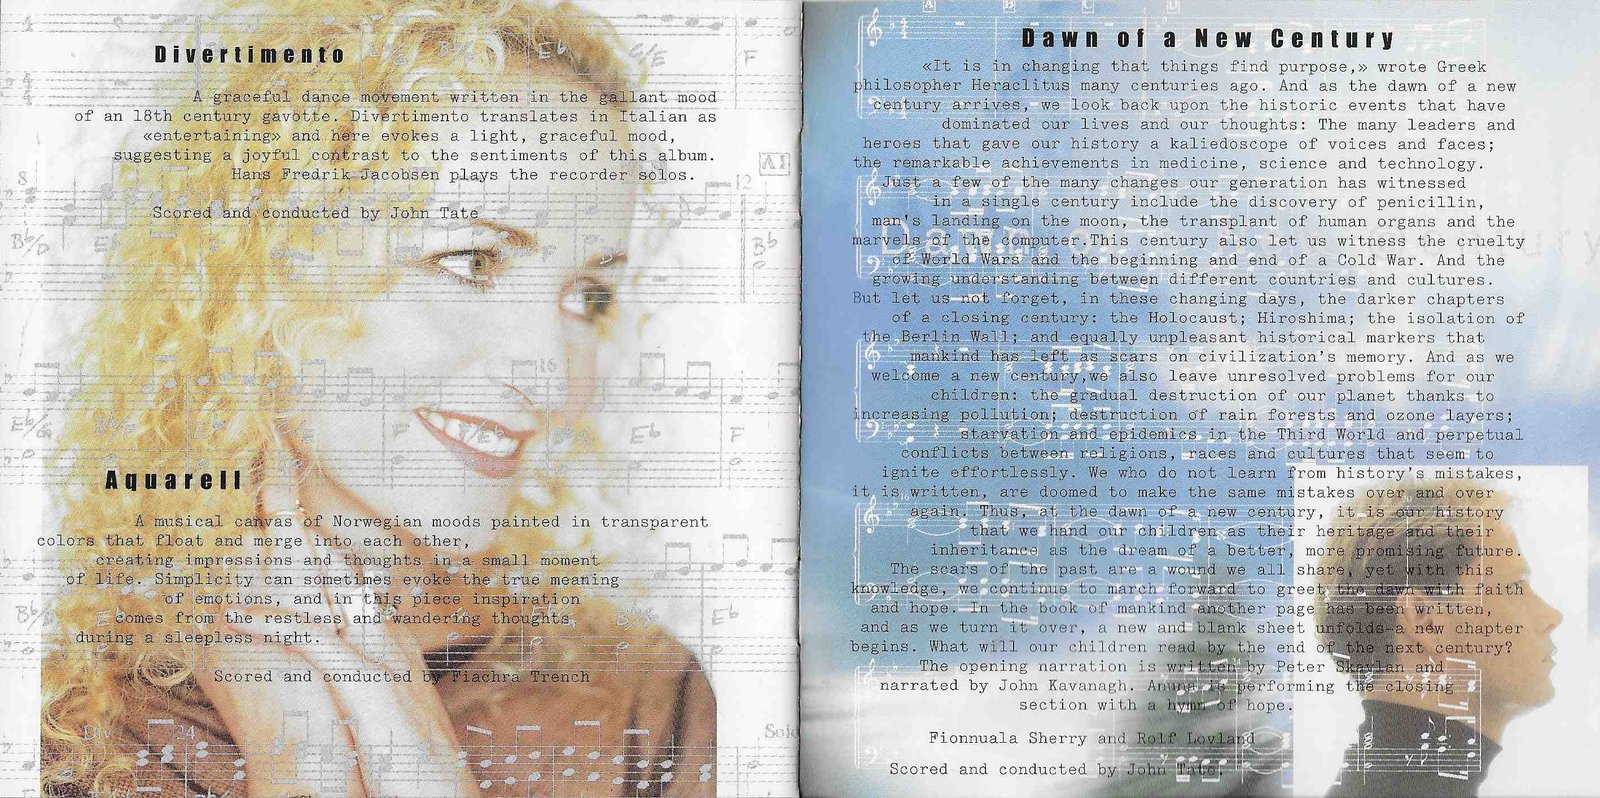 Divertimento
A graceful dance movement written in the gallant mood
of an 18th century gavotte. Divertimento translates in Italian as
«entertaining» and here evokes a light, graceful mood,
suggesting a joyful contrast to the sentiments of this album.
Hans Fredrik Jacobsen plays the recorder solos.
Scored and conducted by John Tate
Aquarell
A musical canvas of Norwegian moods painted in transparent
colors that float and merge into each other,
creating impressions and thoughts in a small moment
of life. Simplicity can sometimes evoke the true meaning
of emotions, and in this piece inspiration
comes from the restless and wandering thoughts
during a sleepless night.
Scored and conducted by Fiachra Trench
Dawn of a New Century
«It is in changing that things find purpose,» wrote Greek
philosopher Heraclitus many centuries ago. And as the dawn of a new
century arrives, we look back upon the historic events that have
dominated our lives and our thoughts: The many leaders and
heroes that gave our history a kaliedoscope of voices and faces;
the remarkable achievements in medicine, science and technology.
Just a few of the many changes our generation has witnessed
in a single century include the discovery of penicillin,
man's landing on the moon, the transplant of human organs and the
marvels of the computer.This century also let us witness the cruelty
of World Wars and the beginning and end of a Cold War. And the
growing understanding between different countries and cultures.
But let us not forget, in these changing days, the darker chapters
of a closing century: the Holocaust; Hiroshima; the isolation of
the Berlin Wall; and equally unpleasant historical markers that
mankind has left as scars on civilization's memory. And as we
welcome a new century,we also leave unresolved problems for our
children: the gradual destruction of our planet thanks to
increasing pollution; destruction of rain forests and ozone layers;
starvation and epidemics in the Third World and perpetual
conflicts between religions, races and cultures that seem to
ignite effortlessly. We who do not learn from history's mistakes,
it is written, are doomed to make the same mistakes over and over
again. Thus, at the dawn of a new century, it is our history
that we hand our children as their heritage and their
inheritance as the dream of a better, more promising future.
The scars of the past are a wound we all share, yet with this
knowledge, we continue to march forward to greet the dawn with faith
and hope. In the book of mankind another page has been written,
and as we turn it over, a new and blank sheet unfolds-a new chapter
begins. What will our children read by the end of the next century?
The opening narration is written by Peter Skavlan and
narrated by John Kavanagh. Anuna is performing the closing
section with a hymn of hope.
Fionnuala Sherry and Rolf Lovland
Scored and conducted by John Tate.